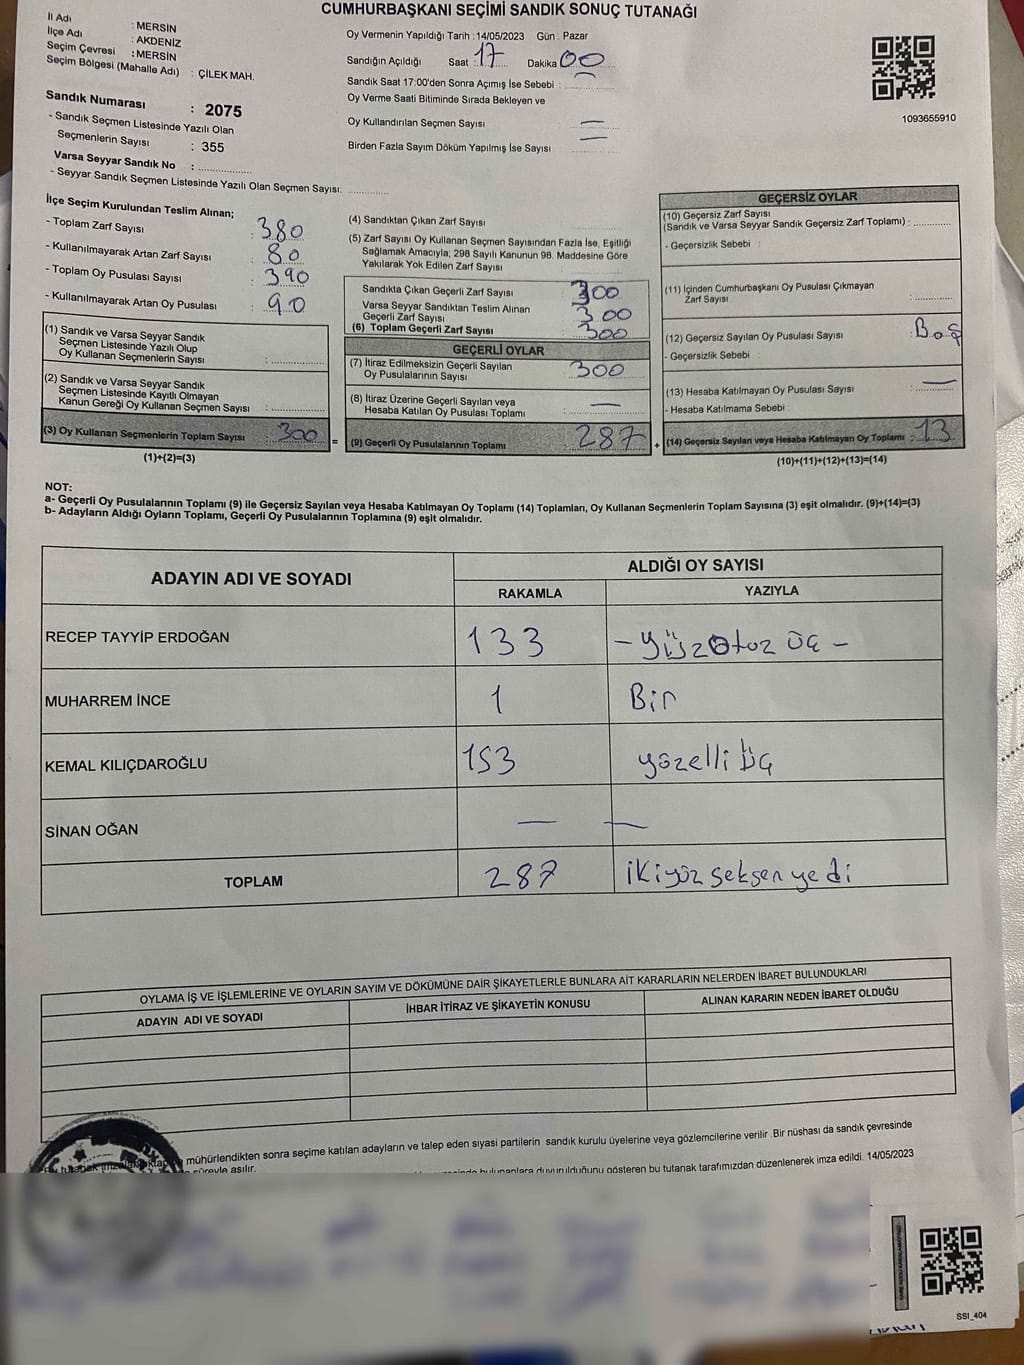 CUMHURBAŞKANI SEÇİMİ SANDIK SONUÇ TUTANAĞI
İl Adı : MERSİN
İlçe Adı : AKDENİZ
Seçim Çevresi : MERSİN
Seçim Bölgesi (Mahalle Adı) : ÇİLEK MAH.
Sandık Numarası : 2075
- Sandık Seçmen Listesinde Yazılı Olan
Seçmenlerin Sayısı : 355
Varsa Seyyar Sandık No :
- Seyyar Sandık Seçmen Listesinde Yazılı Olan Seçmen Sayısı:
Oy Vermenin Yapıldığı Tarih : 14/05/2023 Gün : Pazar
Sandığın Açıldığı Saat : 17 Dakika 00
Sandık Saat 17:00'den Sonra Açımış İse Sebebi : —
Oy Verme Saati Bitiminde Sırada Bekleyen ve
Oy Kullandırılan Seçmen Sayısı —
Birden Fazla Sayım Döküm Yapılmış İse Sayısı —
1093655910
İlçe Seçim Kurulundan Teslim Alınan;
- Toplam Zarf Sayısı : 380
- Kullanılmayarak Artan Zarf Sayısı : 80
- Toplam Oy Pusulası Sayısı : 390
- Kullanılmayarak Artan Oy Pusulası : 90
(1) Sandık ve Varsa Seyyar Sandık
Seçmen Listesinde Yazılı Olup
Oy Kullanan Seçmenlerin Sayısı :
(2) Sandık ve Varsa Seyyar Sandık
Seçmen Listesinde Kayıtlı Olmayan
Kanun Gereği Oy Kullanan Seçmen Sayısı :
(3) Oy Kullanan Seçmenlerin Toplam Sayısı : 300
(1)+(2)=(3)
=
(4) Sandıktan Çıkan Zarf Sayısı
(5) Zarf Sayısı Oy Kullanan Seçmen Sayısından Fazla İse, Eşitliği
Sağlamak Amacıyla; 298 Sayılı Kanunun 98. Maddesine Göre
Yakılarak Yok Edilen Zarf Sayısı
Sandıkta Çıkan Geçerli Zarf Sayısı 300
Varsa Seyyar Sandıktan Teslim Alınan
Geçerli Zarf Sayısı 300
(6) Toplam Geçerli Zarf Sayısı 300
GEÇERLİ OYLAR
(7) İtiraz Edilmeksizin Geçerli Sayılan
Oy Pusulalarının Sayısı 300
(8) İtiraz Üzerine Geçerli Sayılan veya
Hesaba Katılan Oy Pusulası Toplamı —
(9) Geçerli Oy Pusulalarının Toplamı 287
+
GEÇERSİZ OYLAR
(10) Geçersiz Zarf Sayısı
(Sandık ve Varsa Seyyar Sandık Geçersiz Zarf Toplamı) :
- Geçersizlik Sebebi :
(11) İçinden Cumhurbaşkanı Oy Pusulası Çıkmayan
Zarf Sayısı :
(12) Geçersiz Sayılan Oy Pusulası Sayısı : Boş
- Geçersizlik Sebebi :
(13) Hesaba Katılmayan Oy Pusulası Sayısı : —
- Hesaba Katılmama Sebebi :
(14) Geçersiz Sayılan veya Hesaba Katılmayan Oy Toplamı : 13
(10)+(11)+(12)+(13)=(14)
NOT:
a- Geçerli Oy Pusulalarının Toplamı (9) ile Geçersiz Sayılan veya Hesaba Katılmayan Oy Toplamı (14) Toplamları, Oy Kullanan Seçmenlerin Toplam Sayısına (3) eşit olmalıdır. (9)+(14)=(3)
b- Adayların Aldığı Oyların Toplamı, Geçerli Oy Pusulalarının Toplamına (9) eşit olmalıdır.
ADAYIN ADI VE SOYADI
ALDIĞI OY SAYISI
RAKAMLA YAZIYLA
RECEP TAYYİP ERDOĞAN 133 - yüzotuz üç -
MUHARREM İNCE 1 Bir
KEMAL KILIÇDAROĞLU 153 yüzelli üç
SİNAN OĞAN — —
TOPLAM 287 ikiyüz seksen yedi
OYLAMA İŞ VE İŞLEMLERİNE VE OYLARIN SAYIM VE DÖKÜMÜNE DAİR ŞİKAYETLERLE BUNLARA AİT KARARLARIN NELERDEN İBARET BULUNDUKLARI
ADAYIN ADI VE SOYADI İHBAR İTİRAZ VE ŞİKAYETİN KONUSU ALINAN KARARIN NEDEN İBARET OLDUĞU
mühürlendikten sonra seçime katılan adayların ve talep eden siyasi partilerin sandık kurulu üyelerine veya gözlemcilerine verilir .Bir nüshası da sandık çevresinde
süreyle asılır.
bulunanlara duyurulduğunu gösteren bu tutanak tarafımızdan düzenlenerek imza edildi. 14/05/2023
SSI_404